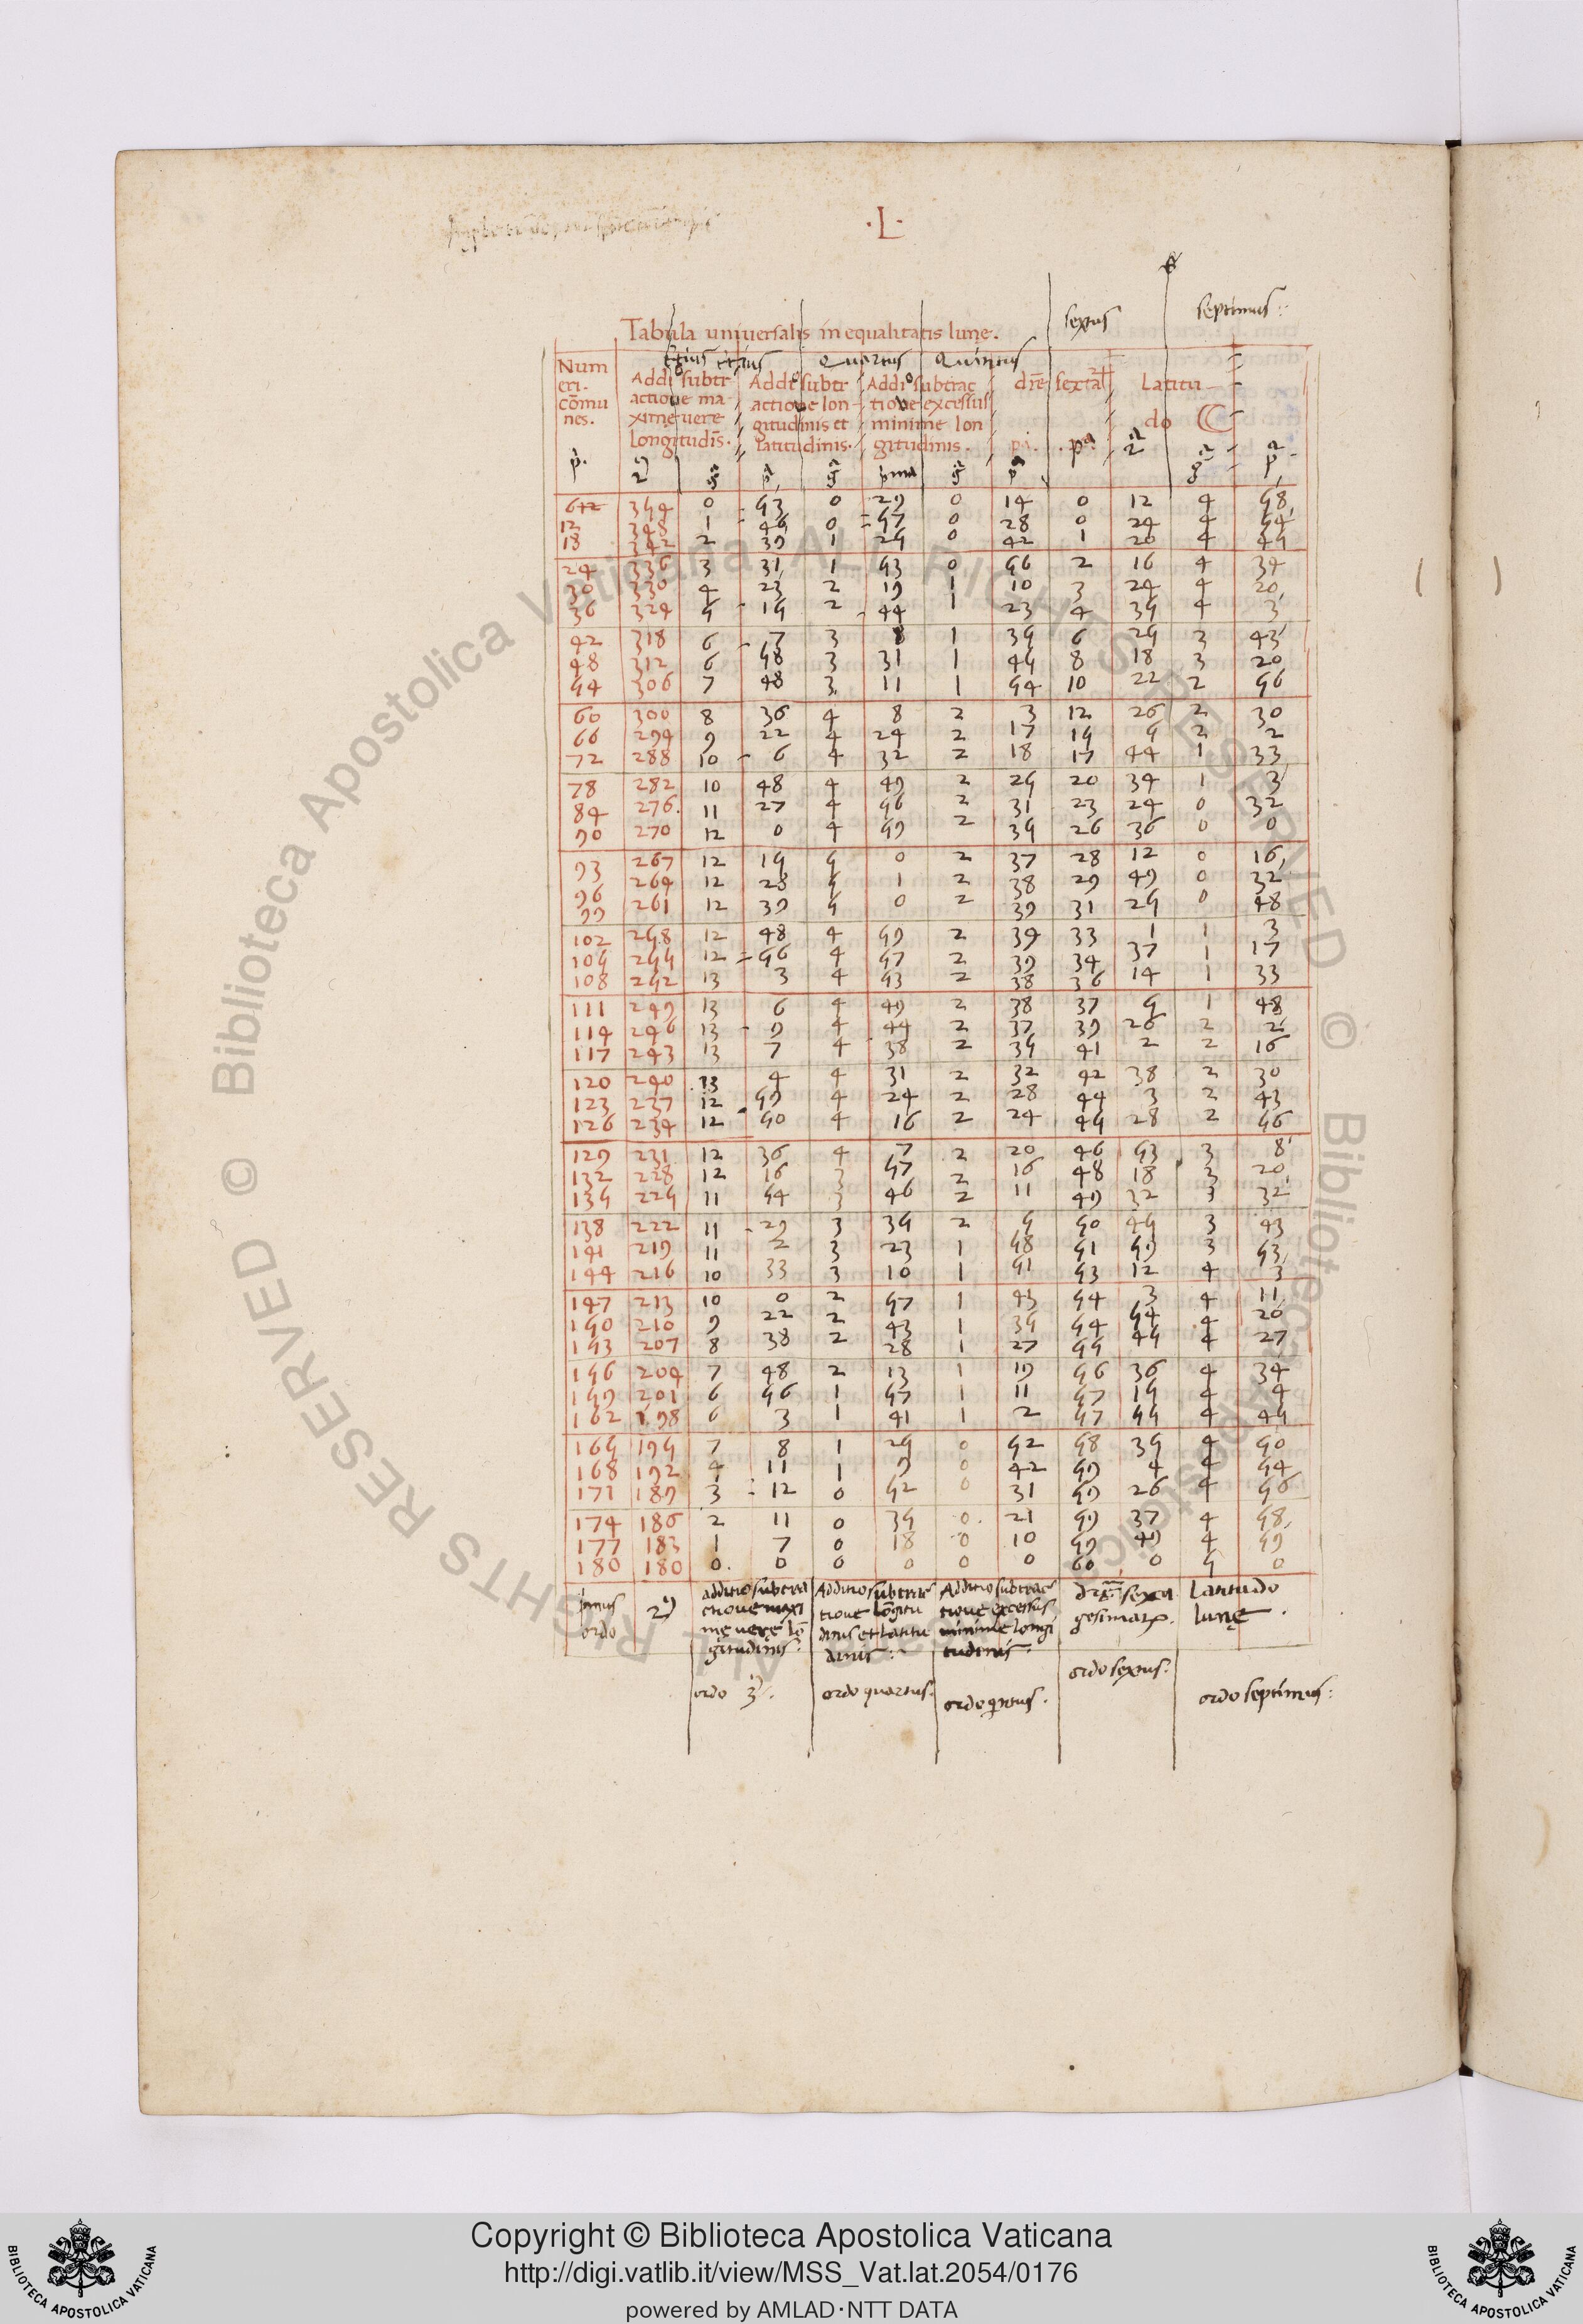 ·L·
sexus septimus:
Tabula universalis inequalitatis lune.
tertius Quartus Quintus
Num Addi subtr Addi subtr Addi subtrac dr̄e sexta Latitu
eri. actione ma- actione lon- tione excessus
cōmu xime vere gitudinis et minime lon do
nes. Longitudīs. latitudinis. gitudinis.
612 354 0 53 0 29 0 14 0 12 4 58
12 348 1 46 0 57 0 28 0 24 4 54
18 342 2 39 1 25 0 42 1 20 4 45
24 336 3 31 1 53 0 56 2 16 4 34
30 330 4 23 2 19 1 10 3 24 4 20
36 324 5 15 2 44 1 23 4 35 4 3
42 318 6 7 3 8 1 35 6 25 3 43
48 312 6 58 3 31 1 45 8 18 3 20
54 306 7 48 3 11 1 54 10 22 2 56
60 300 8 36 4 8 2 3 12 26 2 30
66 294 9 22 4 24 2 17 15 5 2 2
72 288 10 6 4 32 2 18 17 44 1 33
78 282 10 48 4 49 2 25 20 34 1 3
84 276 11 27 4 56 2 31 23 24 0 32
90 270 12 0 4 59 2 35 26 36 0 0
93 267 12 15 5 0 2 37 28 12 0 16
96 264 12 28 5 1 2 38 29 49 0 32
99 261 12 39 5 0 2 39 31 25 0 48
102 258 12 48 4 59 2 39 33 1 1 3
105 255 12 56 4 57 2 39 34 37 1 17
108 252 13 3 4 53 2 38 36 14 1 33
111 249 13 6 4 49 2 38 37 5 1 48
114 246 13 9 4 44 2 37 39 26 2 2
117 243 13 7 4 38 2 35 41 2 2 16
120 240 13 4 4 31 2 32 42 38 2 30
123 237 12 59 4 24 2 28 44 3 2 43
126 234 12 50 4 16 2 24 45 28 2 56
129 231 12 36 4 7 2 20 46 53 3 8
132 228 12 16 3 57 2 16 48 18 3 20
135 225 11 54 3 46 2 11 49 32 3 32
138 222 11 29 3 35 2 5 50 45 3 43
141 219 11 2 3 23 1 58 51 59 3 53
144 216 10 33 3 10 1 51 53 12 4 3
147 213 10 0 2 57 1 43 54 3 4 11
150 210 9 22 2 43 1 35 54 54 4 20
153 207 8 38 2 28 1 27 55 45 4 27
156 204 7 48 2 13 1 19 56 36 4 34
159 201 6 56 1 57 1 11 57 15 4 4
162 198 6 3 1 41 1 2 57 55 4 45
165 195 7 8 1 25 0 52 58 35 4 50
168 192 4 11 1 9 0 42 59 4 4 54
171 189 3 12 0 52 0 31 59 26 4 56
174 186 2 11 0 35 0 21 59 37 4 58
177 183 1 7 0 18 0 10 59 49 4 59
180 180 0 0 0 0 0 0 60 0 5 0
additio subtra Additio subtrac Additio subtrac sexa latitudo
primus ctione maxi tione lōgitu tione excessus gesimarꝝ lune.
ordo me vere lō dinis et latitu minime longi
gitudinis: dinis: tudinis:
ordo sexus:
ordo 3 ordo quartus: ordo qintus. ordo septimus:
© Biblioteca Apostolica Vaticana ALL RIGHTS RESERVED
© Biblioteca Apostolica Vaticana ALL RIGHTS RESERVED
Copyright © Biblioteca Apostolica Vaticana
http://digi.vatlib.it/view/MSS_Vat.lat.2054/0176
powered by AMLAD·NTT DATA
BIBLIOTECA APOSTOLICA VATICANA
BIBLIOTECA APOSTOLICA VATICANA